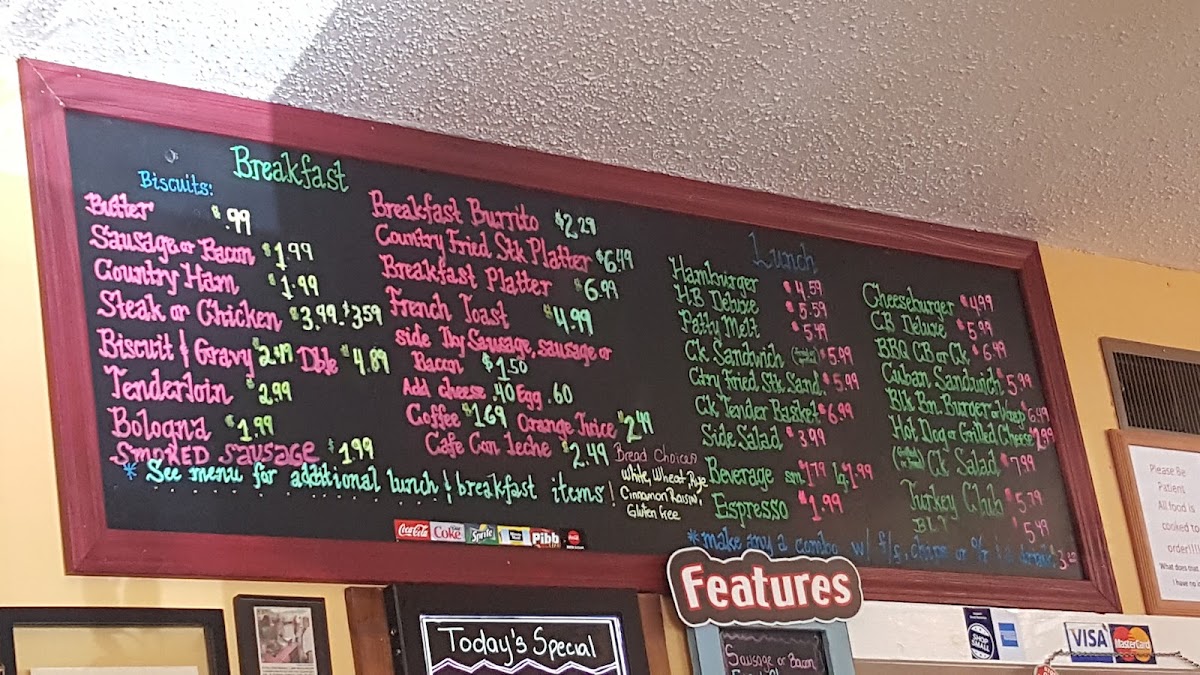 Breakfast
Biscuits:
Butter $.99
Sausage or Bacon $1.99
Country Ham $1.99
Steak or Chicken $3.99 $3.59
Biscuit & Gravy $2.49 Dble $4.89
Tenderloin $2.99
Bologna $1.99
SMOKED SAUSAGE $1.99
Breakfast Burrito $2.29
Country Fried Stk Platter $6.49
Breakfast Platter $6.99
French Toast $4.99
side Tky Sausage, sausage or
Bacon $1.50
Add cheese .40 Egg .60
Coffee $1.69 Orange Juice $2.49
Cafe Con Leche $2.49
Bread Choices
White, Wheat, Rye
Cinnamon Raisin,
Gluten free
* See menu for additional lunch & breakfast items!
Lunch
Hamburger $4.59
HB Deluxe $5.59
Patty Melt $5.49
Ck Sandwich $5.99
Ctry Fried Stk Sand. $5.99
Ck Tender Basket $6.99
Side Salad $3.99
Beverage sm. $1.79 lg. $1.99
Espresso $1.99
Cheeseburger $4.99
CB Deluxe $5.99
BBQ CB or Ck $6.99
Cuban Sandwich $5.99
Blk Bn. Burger or Wrap $6.99
Hot Dog or Grilled Cheese $2.99
Ck Salad $7.99
Turkey Club $5.79
BLT $5.49
*make any a combo w/ f/s, chips or
Coca-Cola
Coke
Sprite
Pibb
Features
Today's Special
Sausage or Bacon
SHOP SMALL
VISA
MasterCard
Please Be
Patient
All food is
cooked to
order!!!!
What does that
I have no